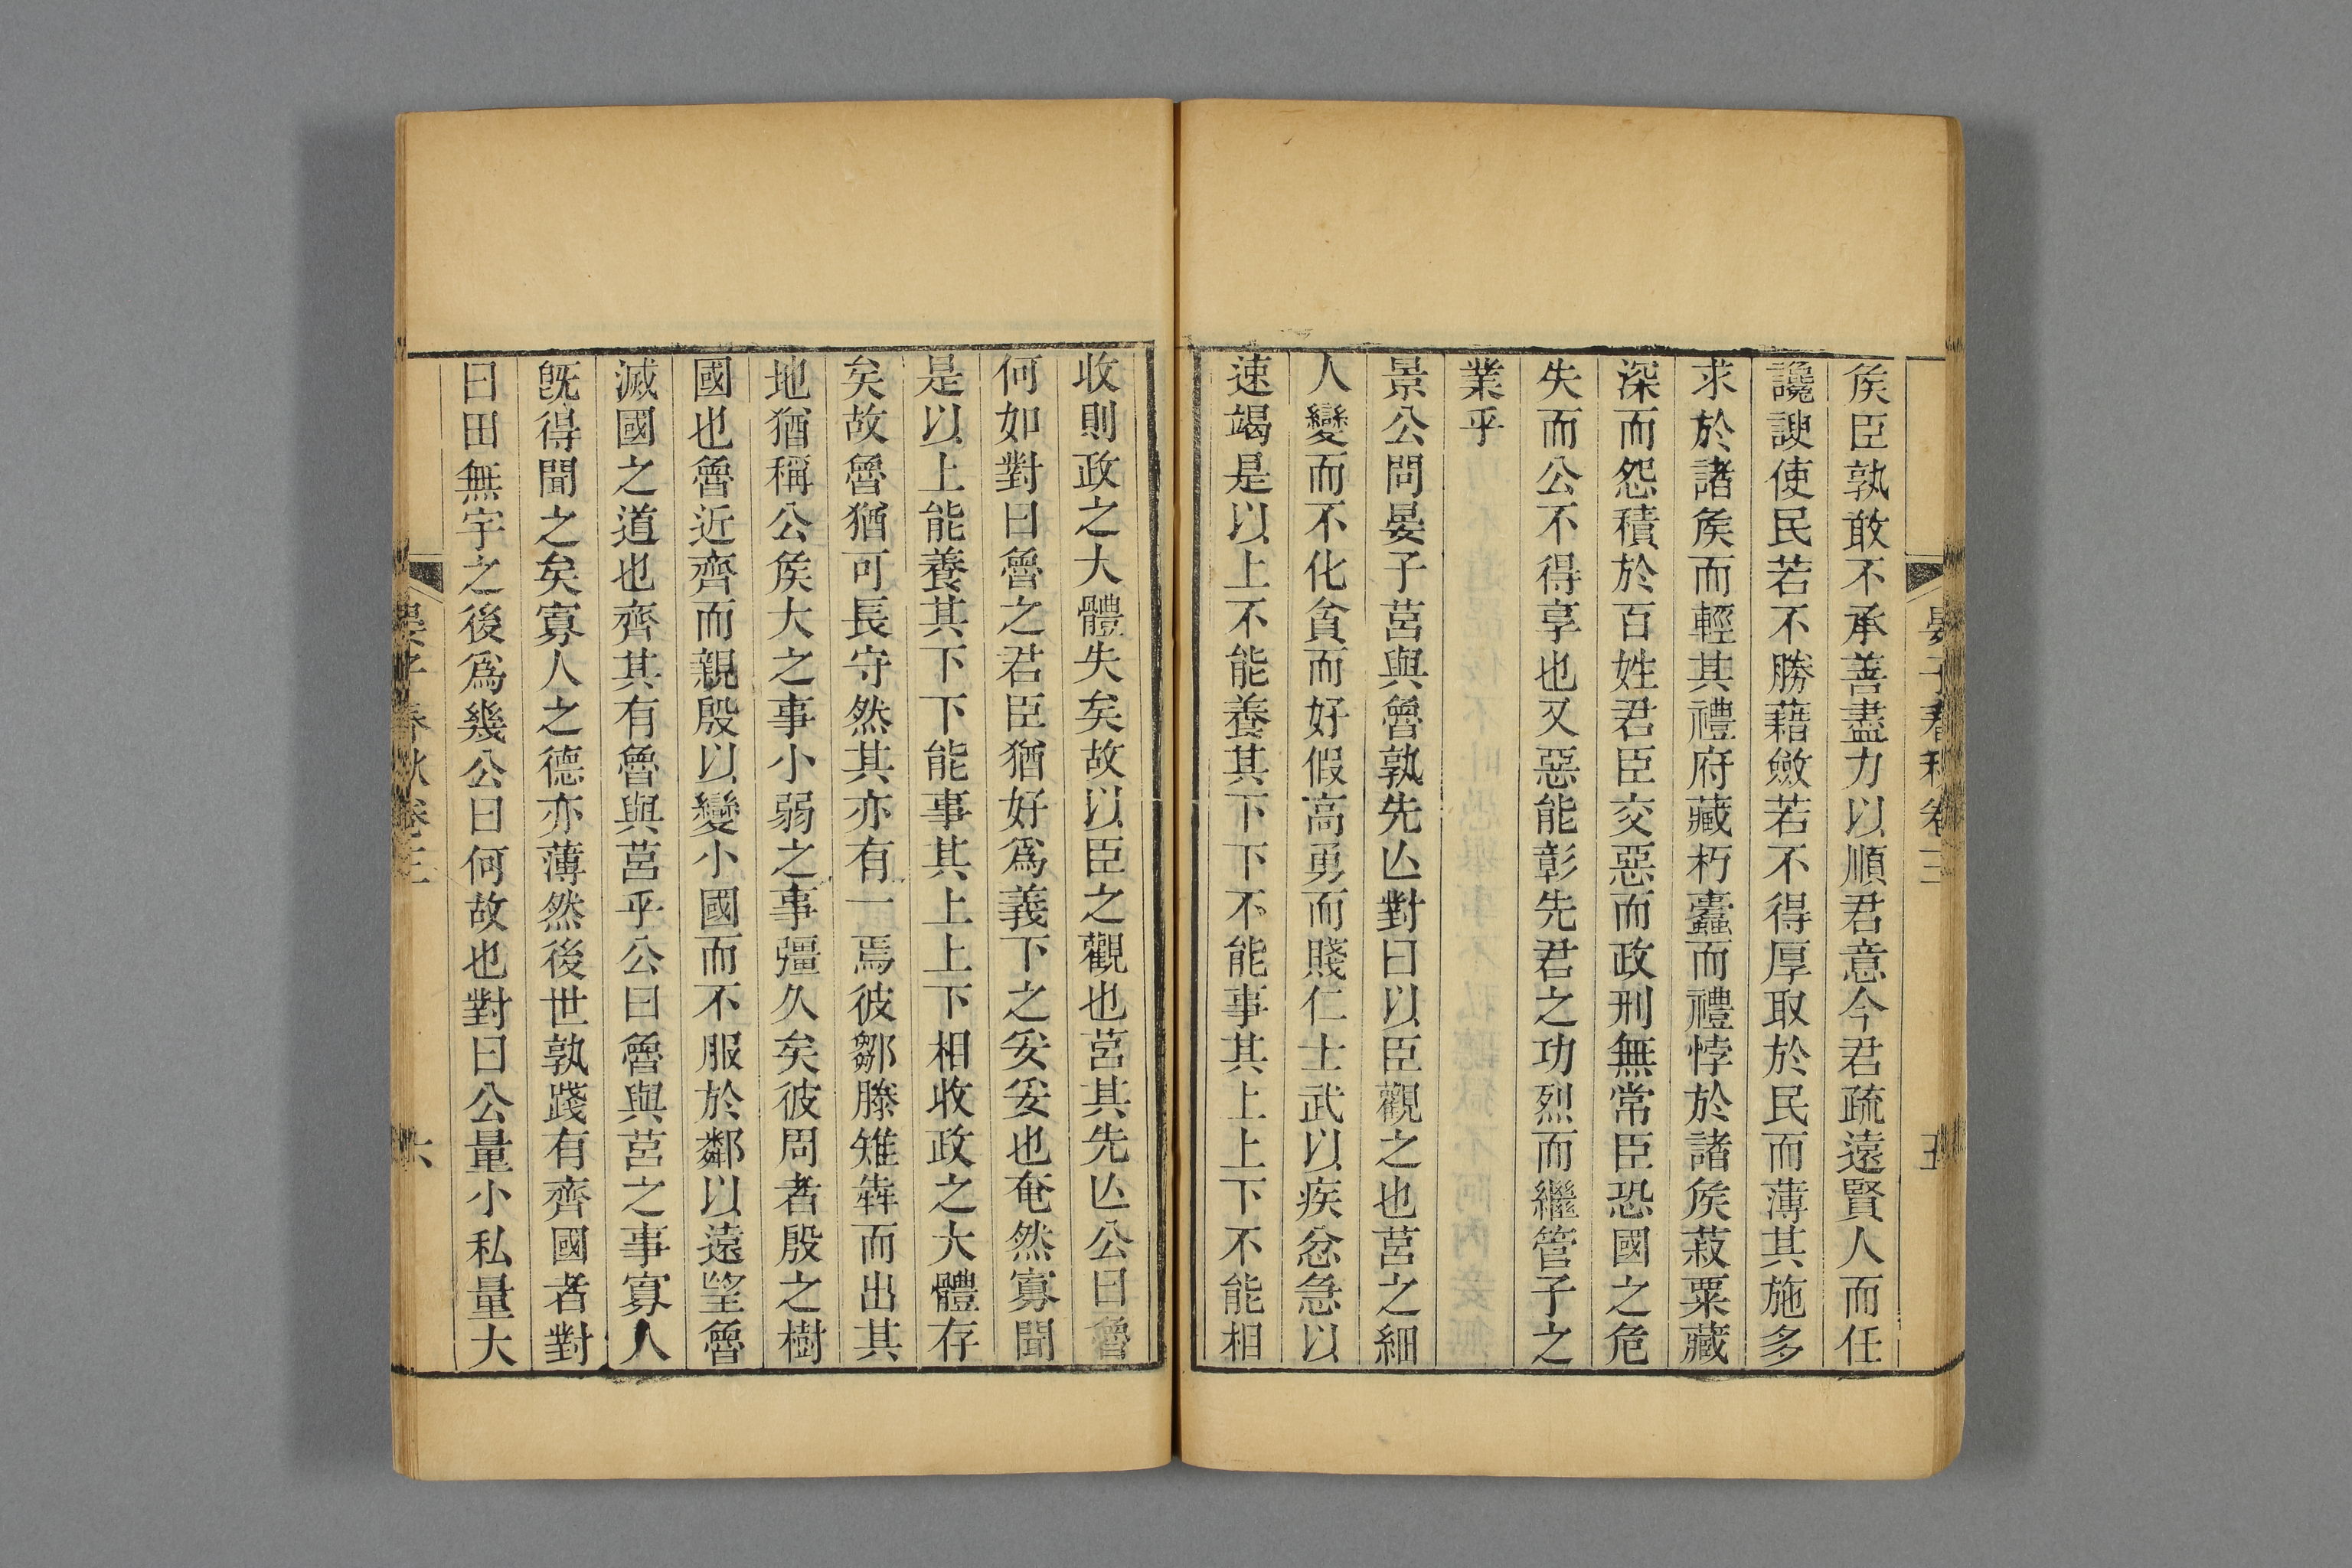 晏子春秋卷三
五
矦臣孰敢不承善盡力以順君意今君疏遠賢人而任
讒諛使民若不勝藉斂若不得厚取於民而薄其施多
求於諸矦而輕其禮府藏朽蠹而禮悖於諸矦菽粟藏
深而怨積於百姓君臣交惡而政刑無常臣恐國之危
失而公不得享也又惡能彰先君之功烈而繼管子之
業乎
景公問晏子莒與魯孰先亾對曰以臣觀之也莒之細
人變而不化貪而好假高勇而賤仁士武以疾忿急以
速竭是以上不能養其下下不能事其上上下不能相
收則政之大體失矣故以臣之觀也莒其先亾公曰魯
何如對曰魯之君臣猶好爲義下之妥妥也奄然寡聞
是以上能養其下下能事其上上下相收政之大體存
矣故魯猶可長守然其亦有一焉彼鄒滕雉犇而出其
地猶稱公矦大之事小弱之事彊久矣彼周者殷之樹
國也魯近齊而親殷以變小國而不服於鄰以遠望魯
滅國之道也齊其有魯與莒乎公曰魯與莒之事寡人
旣得聞之矣寡人之德亦薄然後世孰踐有齊國者對
曰田無宇之後爲幾公曰何故也對曰公量小私量大
晏子春秋卷三
六